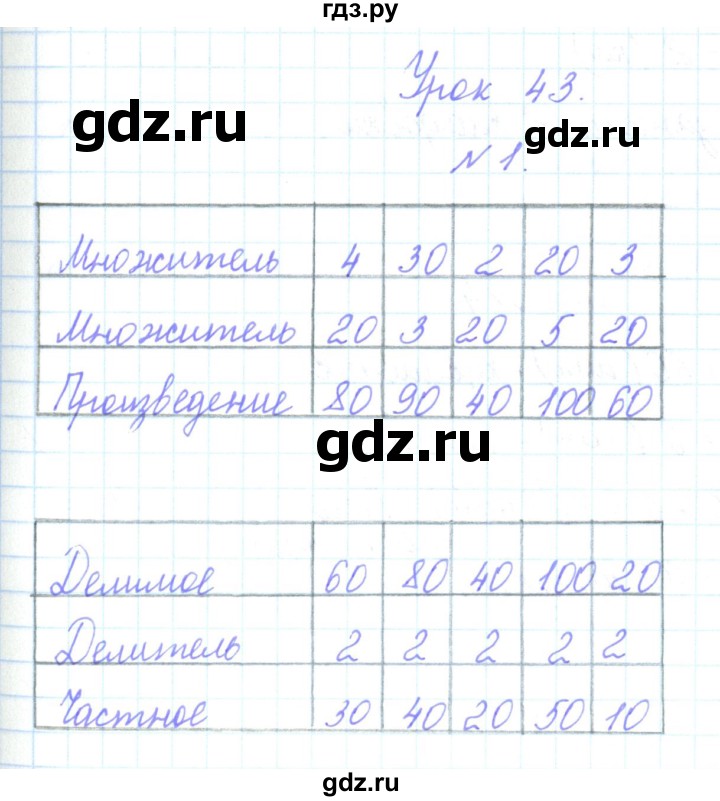 гдз.ру
Урок 43.
gdz.ru
gdz.ru
N 1.
Множитель 4 30 2 20 3
Множитель 20 3 20 5 20
Произведение 80 90 40 100 60
gdz.ru
Делимое 60 80 40 100 20
Делитель 2 2 2 2 2
Частное 30 40 20 50 10
gdz.ru